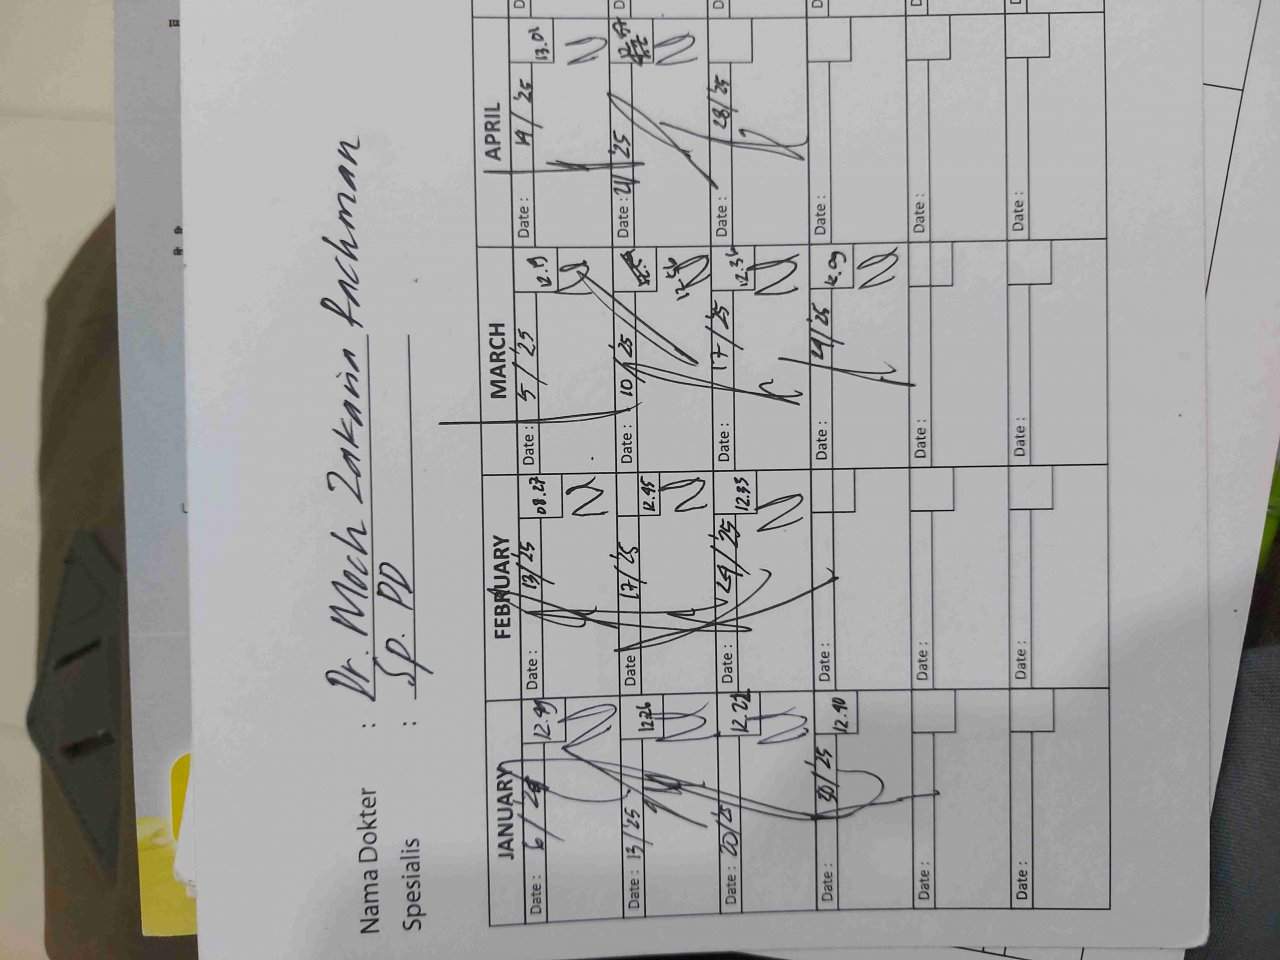 Nama Dokter : Dr. Moch Zakaria Rachman
Spesialis : Sp. PD
JANUARY FEBRUARY MARCH APRIL
Date : 6/25 12.49 Date : 13/25 08.27 Date : 5/25 12.19 Date : 14/25 13.02
Date : 13/25 12.26 Date : 17/25 12.45 Date : 10/25 12.56 Date : 21/25
Date : 20/25 12.22 Date : 24/25 12.33 Date : 17/25 12.36 Date : 28/25
Date : 30/25 12.40 Date : Date : 24/25 12.09 Date :
Date : Date : Date : Date :
Date : Date : Date : Date :